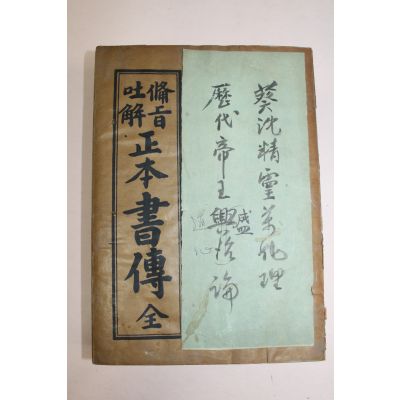 沈精靈萬化理
歷代帝王興論
盛
備旨
吐解
正本書傳 全